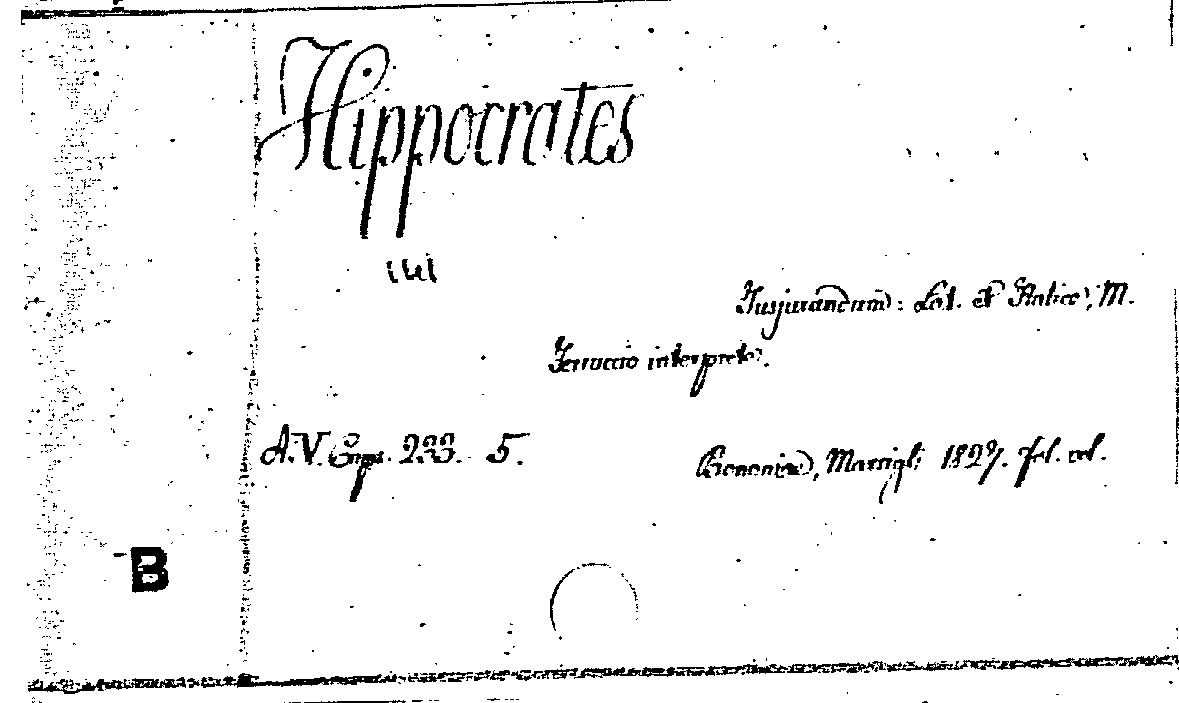 Hippocrates
Jusjurandum: Lat. et Italice, M.
Ferruccio interprete.
A.V. 233. 5.
Bononiae, Marsigli 1827. fol. vol.
B